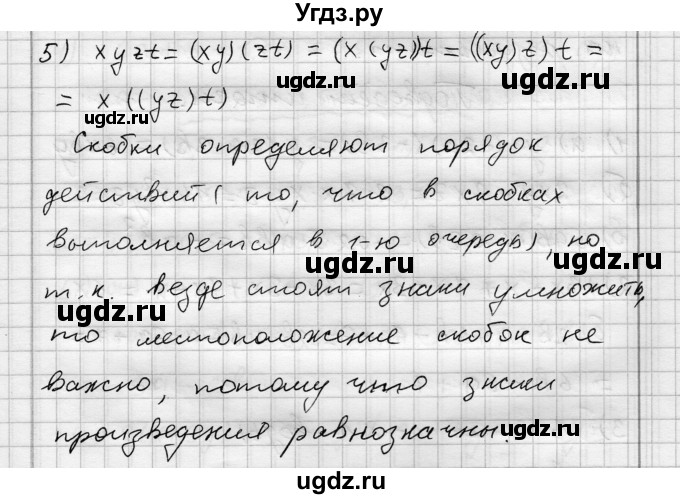 Угдз.ру
5) xyzt = (xy)(zt) = (x(yz))t = ((xy)z)t =
= x((yz)t)
Скобки определяют порядок
действий (то, что в скобках
выполняется в 1-ю очередь), но
т.к. везде стоят знаки умножить,
то местоположение скобок не
важно, потому что знаки
произведения равнозначны.
ugdz.ru
ugdz.ru
ugdz.ru
ugdz.ru
ugdz.ru
ugdz.ru
ugdz.ru
ugdz.ru
ugdz.ru
ugdz.ru
ugdz.ru